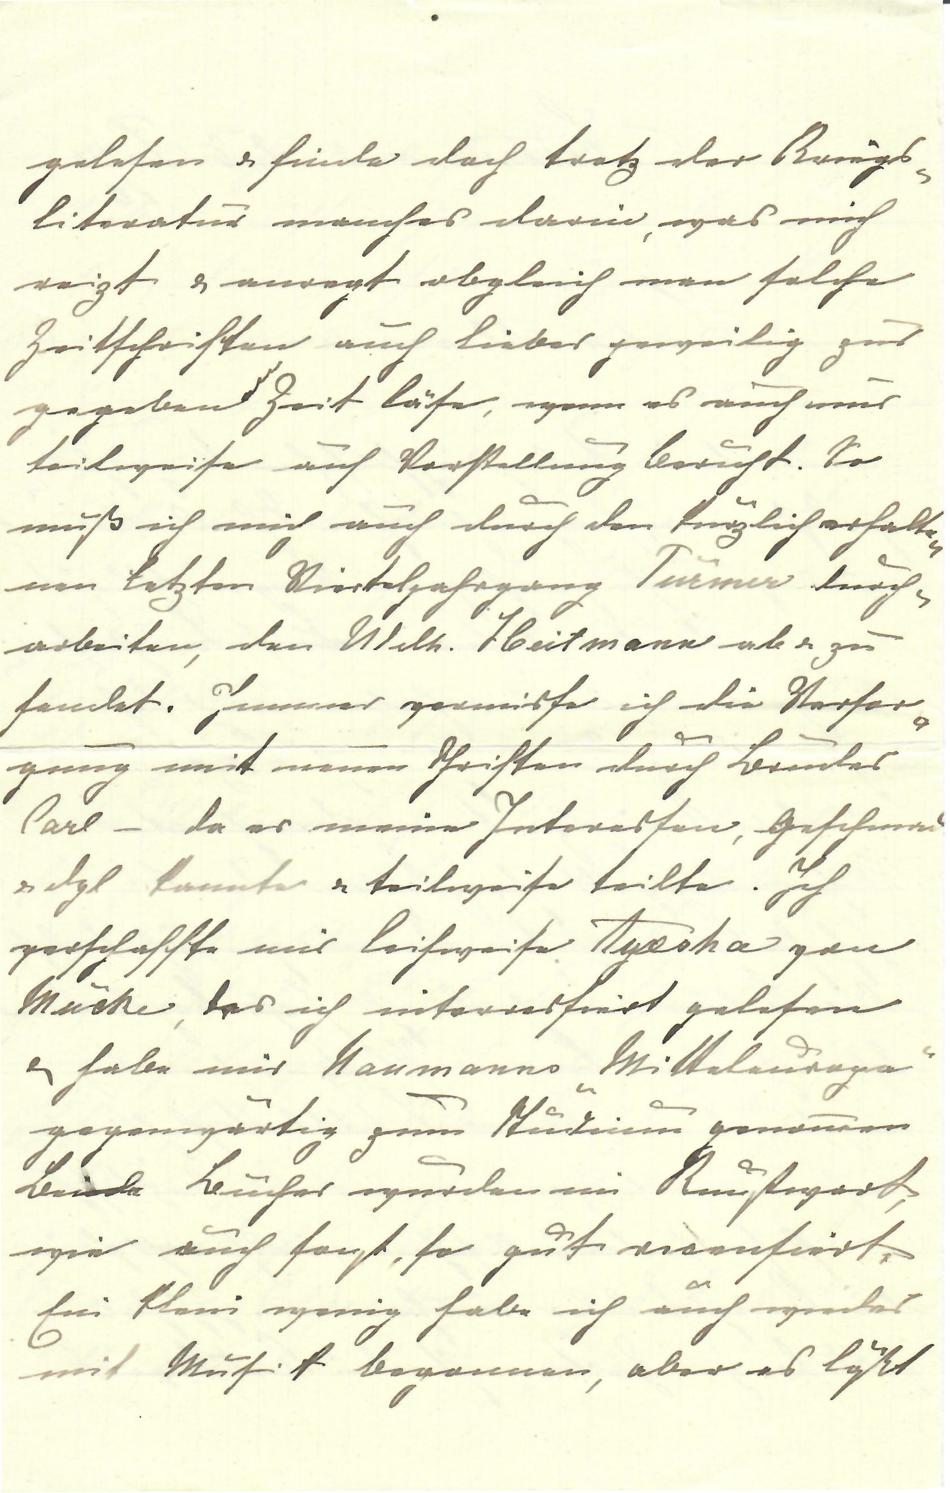 gelesen & finde doch trotz der Kriegs-
literatur manches darin, was mich
reizt & anregt obgleich man solche
Zeitschriften auch lieber jeweilig zur
gegeben Zeit läse, wenn es auch nur
teilweise auf Vorstellung beruht. So
muß ich mich auch durch den kürzlich erhalte-
nen letzten Vierteljahrgang Türmer durch-
arbeiten, den Wilh. Heitmann ab & zu
sendet. Immer vermisse ich die Versor-
gung mit neuen Schriften durch Bruder
Carl – da er meine Interessen, Geschmack
& dgl kannte & teilweise teilte. Ich
verschaffte mir leihweise Ayesha von
Mücke, das ich interressiert gelesen
& habe mir Naumanns Mitteleuropa"
gegenwärtig zum Studium genommen
Beide Bücher wurden im Kunstwart,
wie auch sonst, so gut recensiert.
Ein klein wenig habe ich auch wieder
mit Musik begonnen, aber es läßt